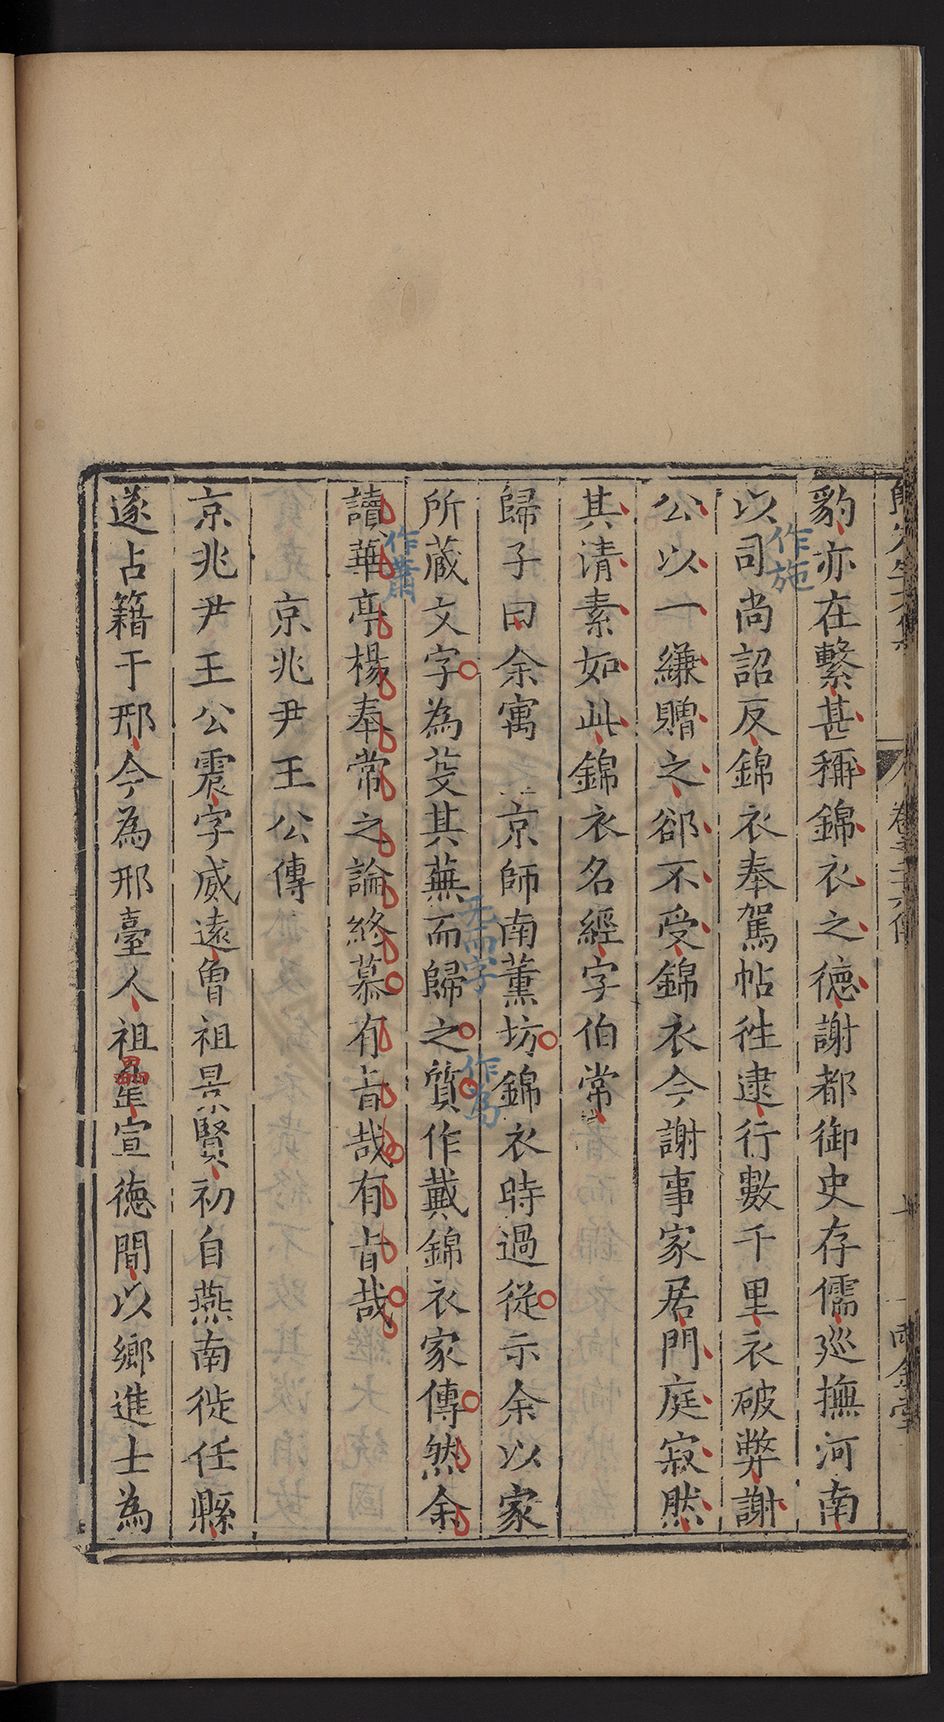 豹亦在繫甚稱錦衣之德謝都御史存儒廵撫河南
作施
以司尚詔反錦衣奉駕帖徃逮行數千里衣破弊謝
公以一縑贈之郤不受錦衣今謝事家居門庭寂然
其清素如此錦衣名經字伯常
歸子曰余寓京師南薰坊錦衣時過從示余以家
无而字
作為
所蔵文字為芟其蕪而歸之質作戴錦衣家傳然余
作蕭
讀華亭楊奉常之論終慕有旨哉有旨哉
京兆尹王公傳
京兆尹王公震字威遠曾祖景賢初自燕南徙任縣
遂占籍于邢今為邢臺人祖宣德間以鄉進士為